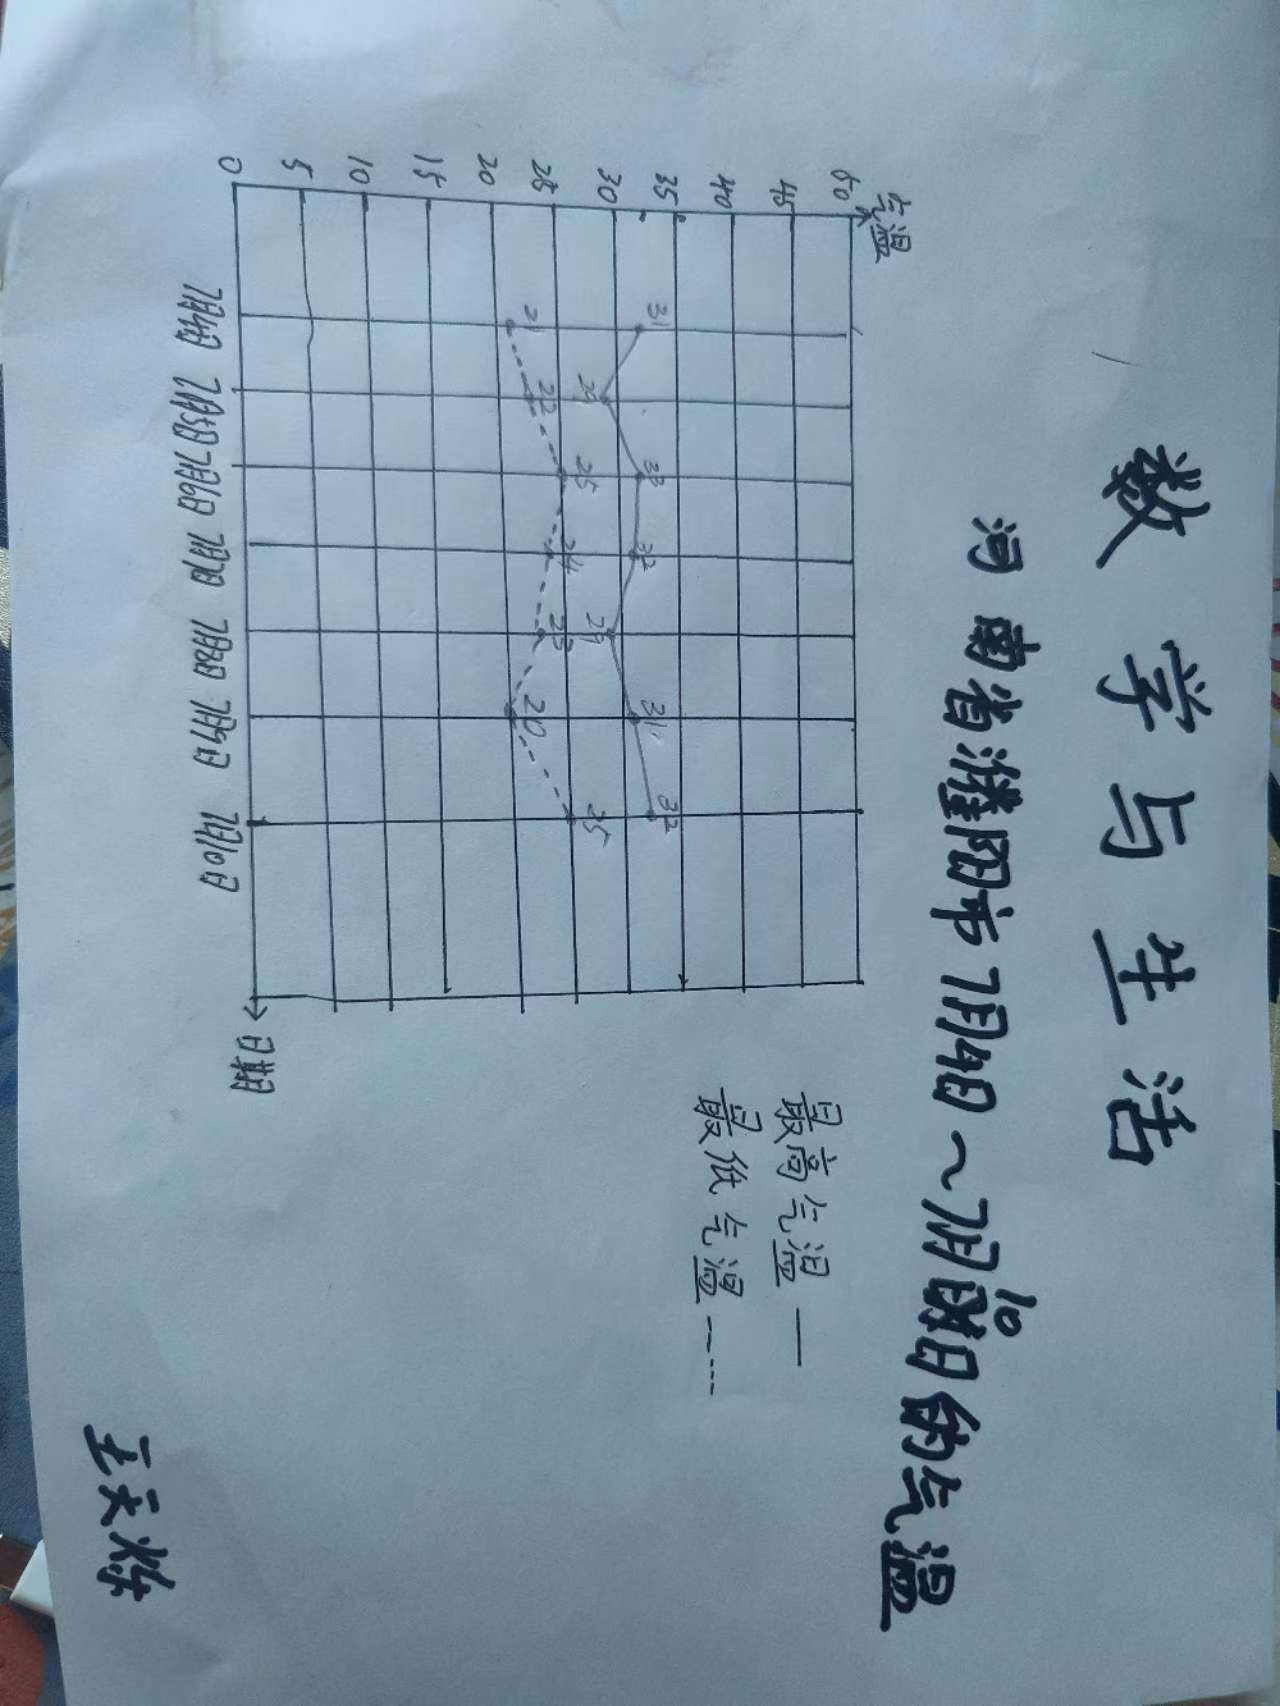 数学与生活
河南省濮阳市7月4日~7月10日的气温
气温
50
45
40
35
30
25
20
15
10
5
0
31 29 33 32 29 31 32
21 22 25 24 23 20 25
7月4日 7月5日 7月6日 7月7日 7月8日 7月9日 7月10日
日期
最高气温
最低气温